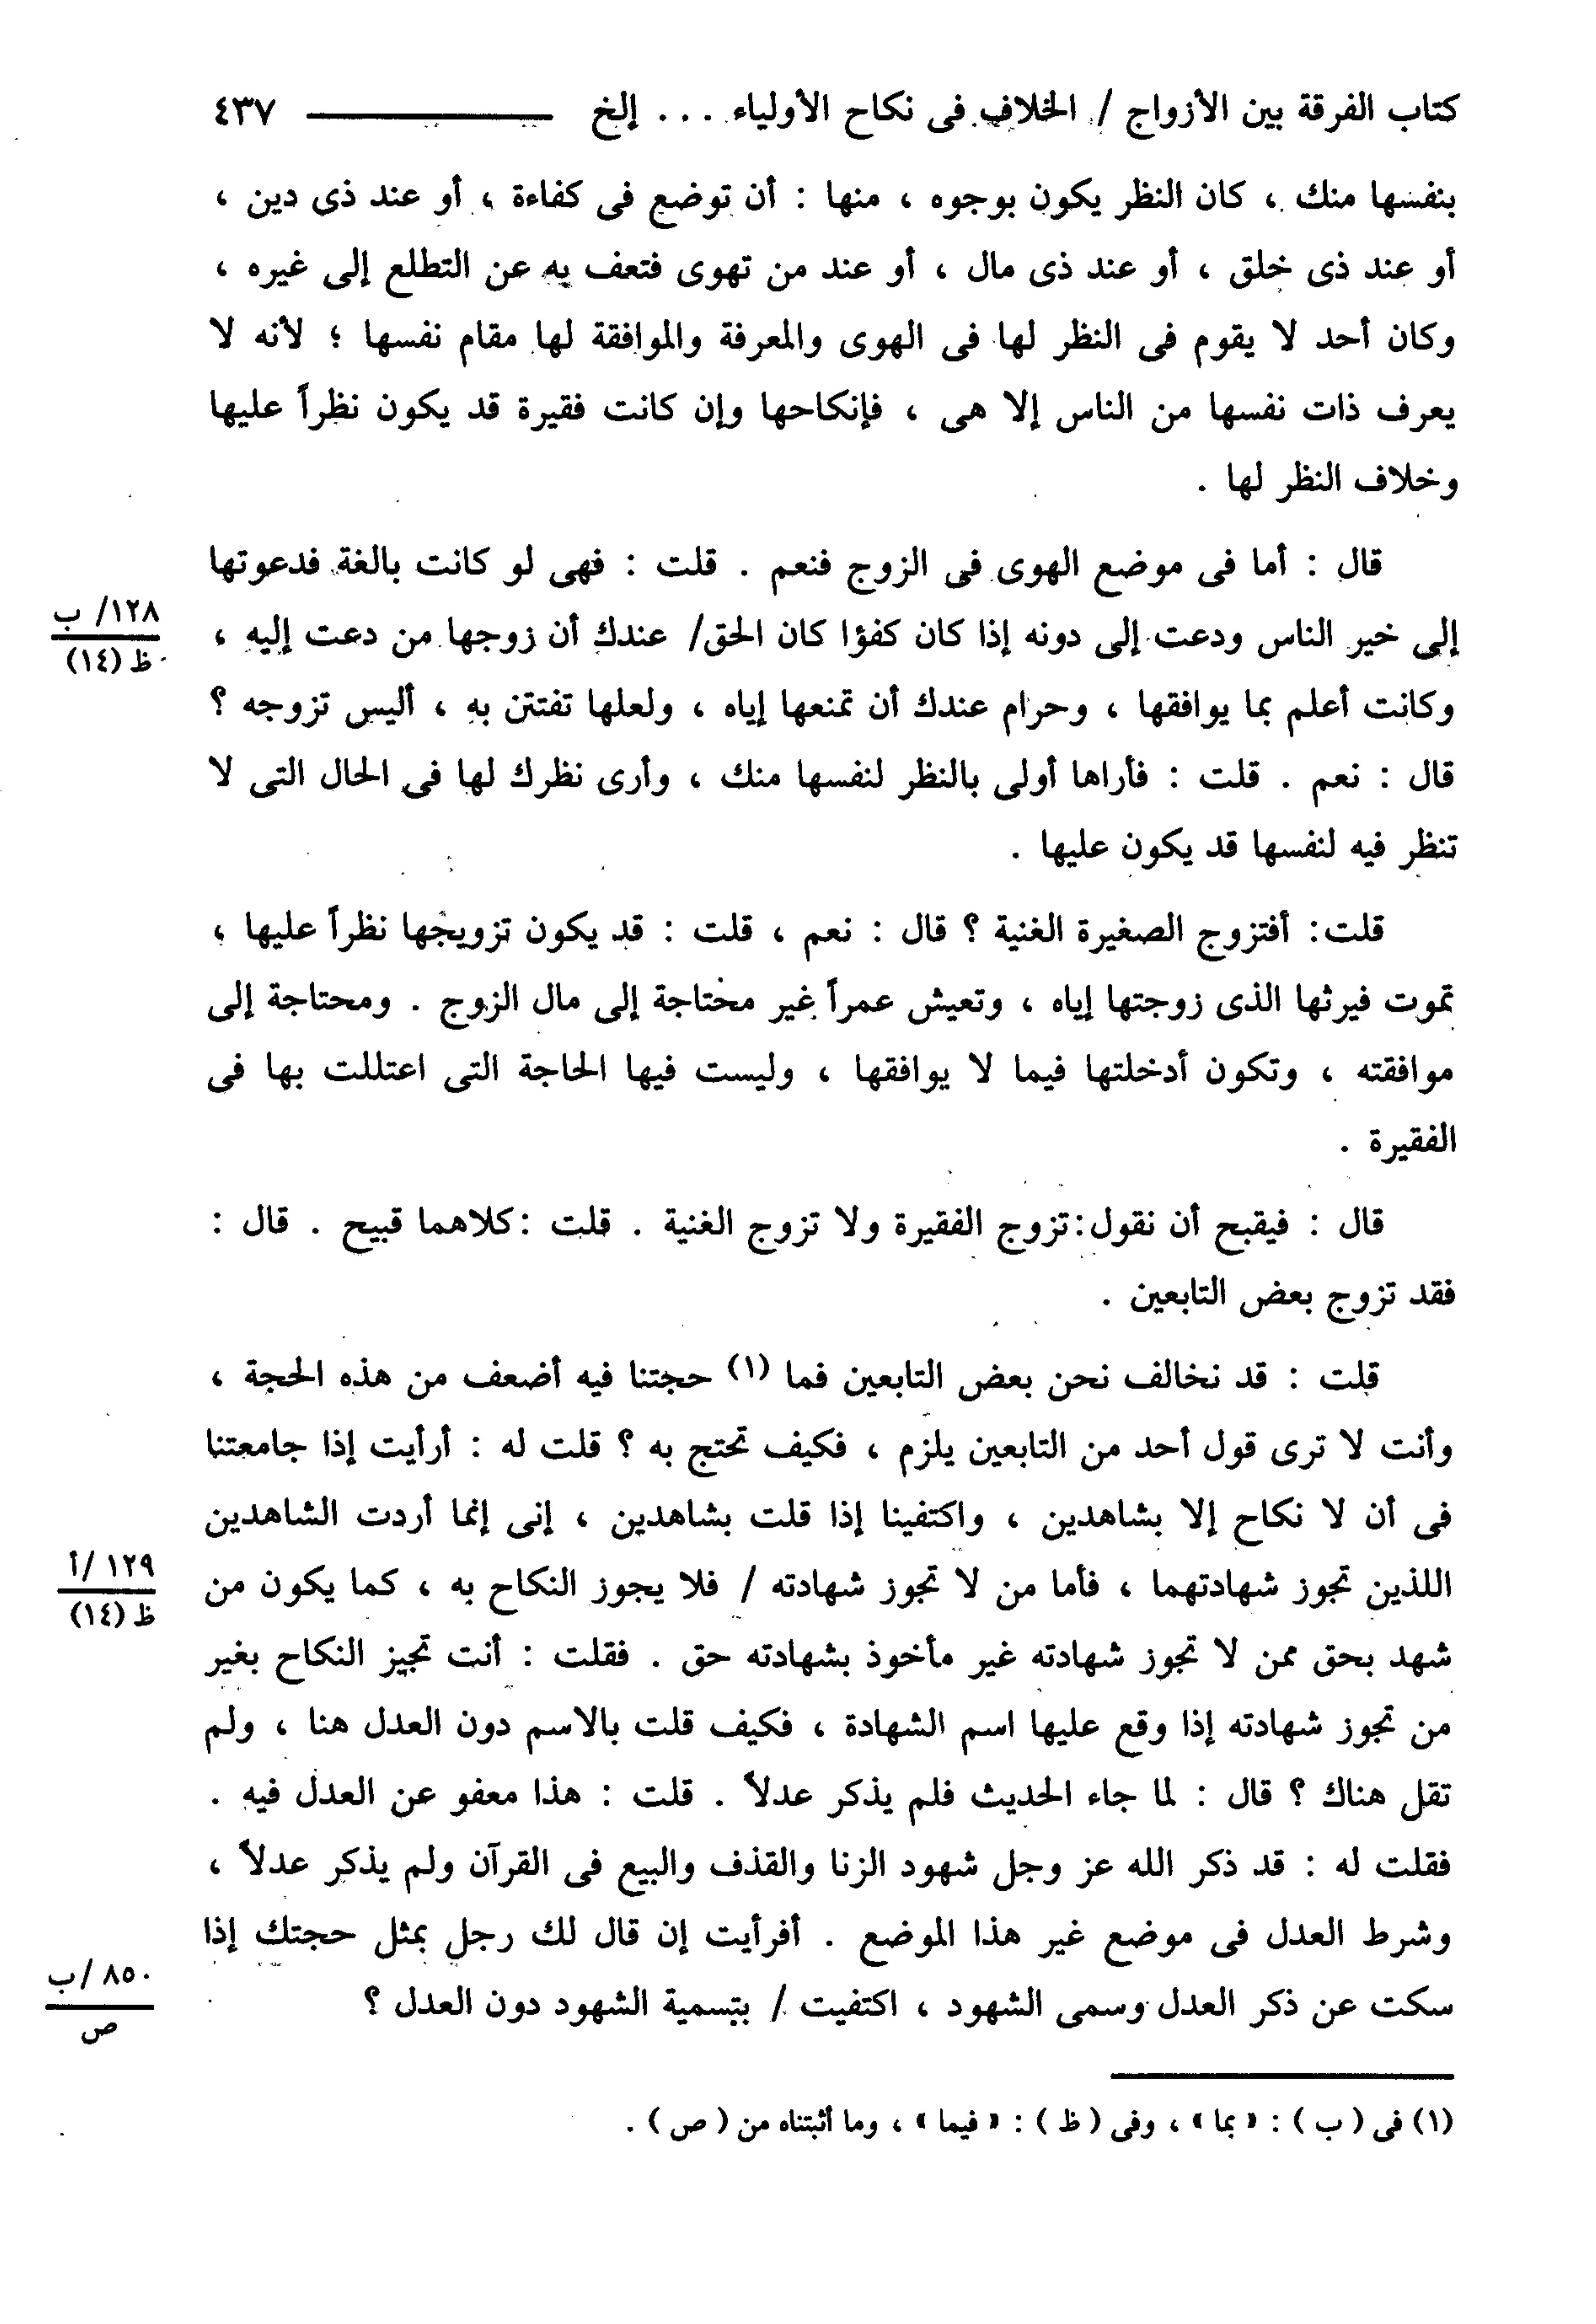 كتاب الفرقة بين الأزواج / الخلاف فى نكاح الأولياء ... إلخ ٤٣٧
بنفسها منك ، كان النظر يكون بوجوه ، منها : أن توضع فى كفاءة ، أو عند ذى دين ،
أو عند ذى خلق ، أو عند ذى مال ، أو عند من تهوى فتعف به عن التطلع إلى غيره ،
وكان أحد لا يقوم فى النظر لها فى الهوى والمعرفة والموافقة لها مقام نفسها ؛ لأنه لا
يعرف ذات نفسها من الناس إلا هى ، فإنكاحها وإن كانت فقيرة قد يكون نظراً عليها
وخلاف النظر لها .
قال : أما فى موضع الهوى فى الزوج فنعم . قلت : فهى لو كانت بالغة فدعوتها
١٢٨/ ب
إلى خير الناس ودعت إلى دونه إذا كان كفؤا كان الحق/ عندك أن زوجها من دعت إليه ،
ظ (١٤)
وكانت أعلم بما يوافقها ، وحرام عندك أن تمنعها إياه ، ولعلها تفتتن به ، أليس تزوجه ؟
قال : نعم . قلت : فأراها أولى بالنظر لنفسها منك ، وأرى نظرك لها فى الحال التى لا
تنظر فيه لنفسها قد يكون عليها .
قلت: أفتزوج الصغيرة الغنية ؟ قال : نعم ، قلت : قد يكون تزويجها نظراً عليها ،
تموت فيرثها الذى زوجتها إياه ، وتعيش عمراً غير محتاجة إلى مال الزوج . ومحتاجة إلى
موافقته ، وتكون أدخلتها فيما لا يوافقها ، وليست فيها الحاجة التى اعتللت بها فى
الفقيرة .
قال : فيقبح أن نقول:تزوج الفقيرة ولا تزوج الغنية . قلت :كلاهما قبيح . قال :
فقد تزوج بعض التابعين .
قلت : قد نخالف نحن بعض التابعين فما (١) حجتنا فيه أضعف من هذه الحجة ،
وأنت لا ترى قول أحد من التابعين يلزم ، فكيف تحتج به ؟ قلت له : أرأيت إذا جامعتنا
فى أن لا نكاح إلا بشاهدين ، واكتفينا إذا قلت بشاهدين ، إنى إنما أردت الشاهدين
١٢٩ /أ
اللذين تجوز شهادتهما ، فأما من لا تجوز شهادته / فلا يجوز النكاح به ، كما يكون من
ظ (١٤)
شهد بحق ممن لا تجوز شهادته غير مأخوذ بشهادته حق . فقلت : أنت تجيز النكاح بغير
من تجوز شهادته إذا وقع عليها اسم الشهادة ، فكيف قلت بالاسم دون العدل هنا ، ولم
تقل هناك ؟ قال : لما جاء الحديث فلم يذكر عدلاً . قلت : هذا معفو عن العدل فيه .
فقلت له : قد ذكر الله عز وجل شهود الزنا والقذف والبيع فى القرآن ولم يذكر عدلاً ،
وشرط العدل فى موضع غير هذا الموضع . أفرأيت إن قال لك رجل بمثل حجتك إذا
٨٥٠ /ب
سكت عن ذكر العدل وسمى الشهود ، اكتفيت / بتسمية الشهود دون العدل ؟
ص
(١) فى ( ب ) : « بما » ، وفى ( ظ ) : « فيما » ، وما أثبتناه من ( ص ) .